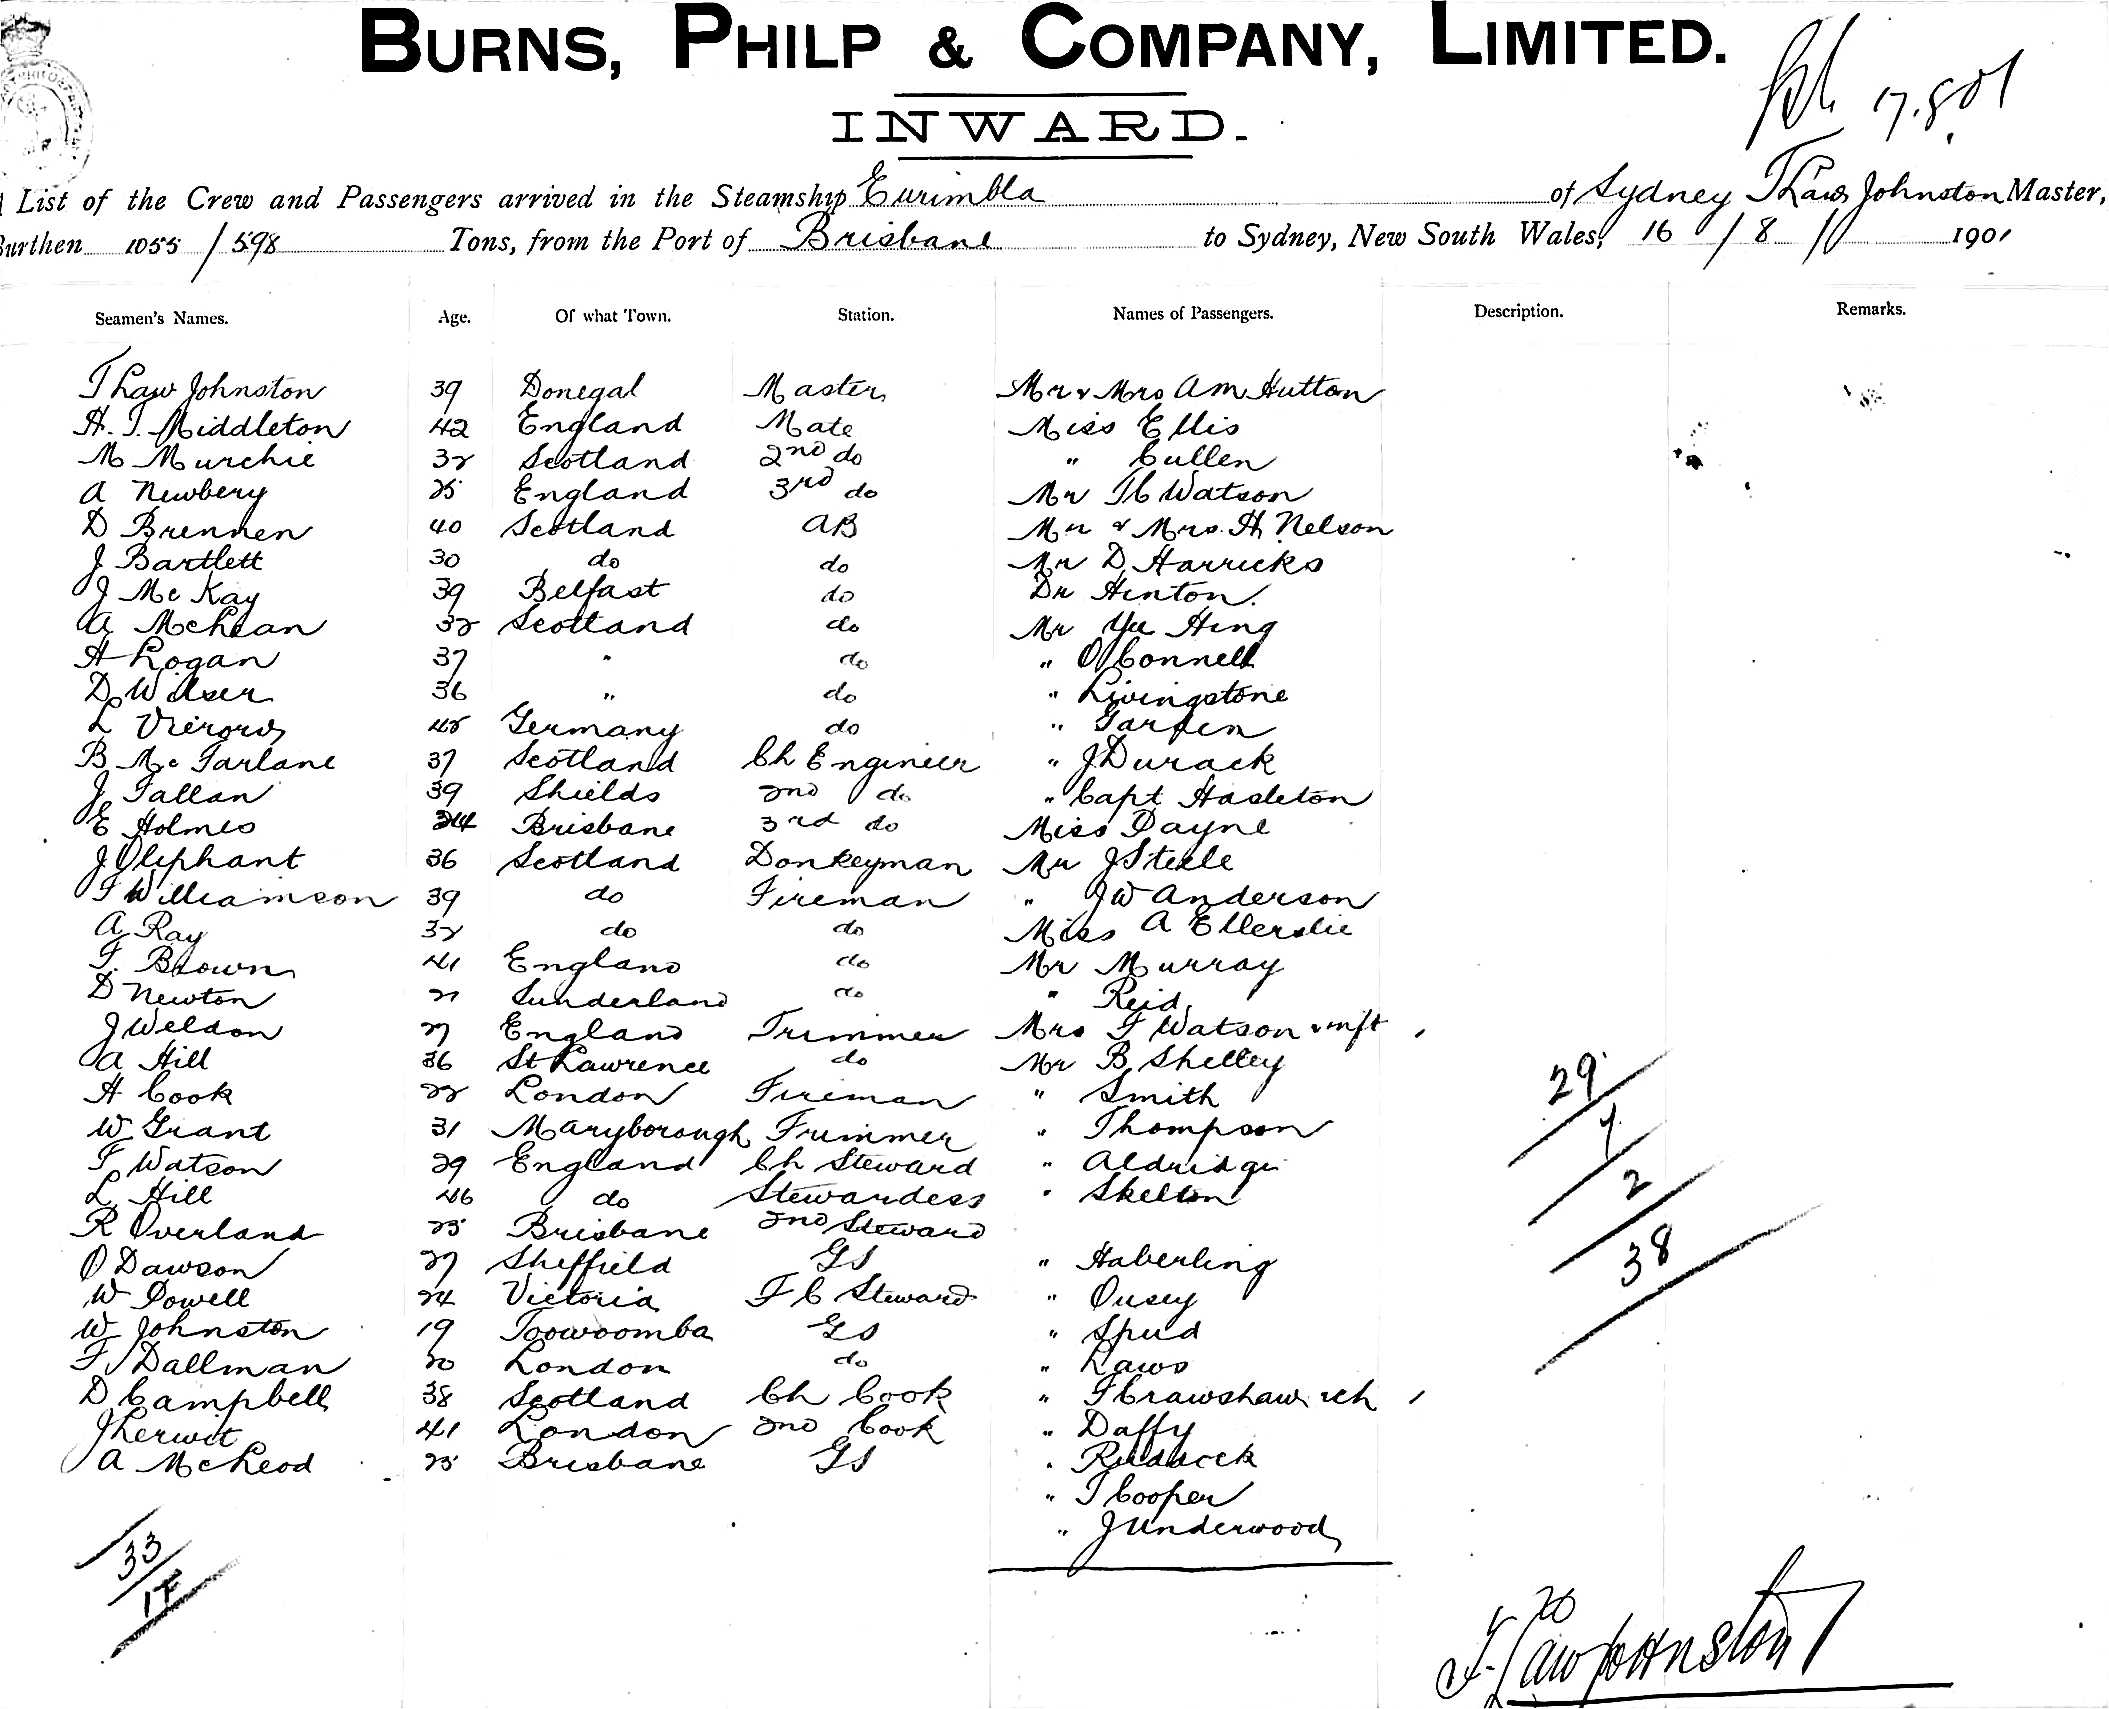 BURNS, PHILP & COMPANY, LIMITED.
17.8.01
INWARD.
List of the Crew and Passengers arrived in the Steamship Eurimbla of Sydney T Law Johnston Master,
Burthen 1055 / 598 Tons, from the Port of Brisbane to Sydney, New South Wales, 16 / 8 / 1901
Seamen's Names. Age. Of what Town. Station. Names of Passengers. Description. Remarks.
T Law Johnston 39 Donegal Master Mr & Mrs A M Hutton
H. T. Middleton 42 England Mate Miss Ellis
M Murchie 32 Scotland 2nd do " Cullen
A Newbery 25 England 3rd do Mr T C Watson
D Brennen 40 Scotland AB Mr & Mrs. H Nelson
J Bartlett 30 do do Mr D Harricks
J McKay 39 Belfast do Dr Hinton.
A McLean 32 Scotland do Mr Yee Hing
H Logan 37 " do " O'Connell
D Wilser 36 " do " Livingstone
L 42 Germany do "
B McFarlane 37 Scotland Ch Engineer " J Durack
J Fallan 39 Shields 2nd do " Capt Hasleton
E Holmes 24 Brisbane 3rd do Miss Payne
J Oliphant 36 Scotland Donkeyman Mr J Steele
F Williamson 39 do Fireman " J W Anderson
A Ray 32 do do Miss A Ellerslie
F. Brown 41 England do Mr Murray
D Newton 21 Sunderland do " Reid
J Weldon 27 England Trimmer Mrs F Watson & inft
A Hill 36 St Lawrence do Mr B Shelley
H Cook 22 London Fireman " Smith
W Grant 31 Maryborough Trimmer " Thompson
F Watson 29 England Ch Steward " Aldridge
L Hill 46 do Stewardess " Skelton
R Overland 25 Brisbane 2nd Steward
O Dawson 27 Sheffield GS " Haberling
W Powell 24 Victoria F C Steward " Ousey
W Johnston 19 Toowoomba GS " Spud
F Dallman 20 London do " Laws
D Campbell 38 Scotland Ch Cook " F Crawshaw & ch
J Kerwit 41 London 2nd Cook " Daffy
A McLeod 25 Brisbane GS " Ruddock
" T Cooper
" J Underwood
29
7
2
38
33
17
T. Law Johnston